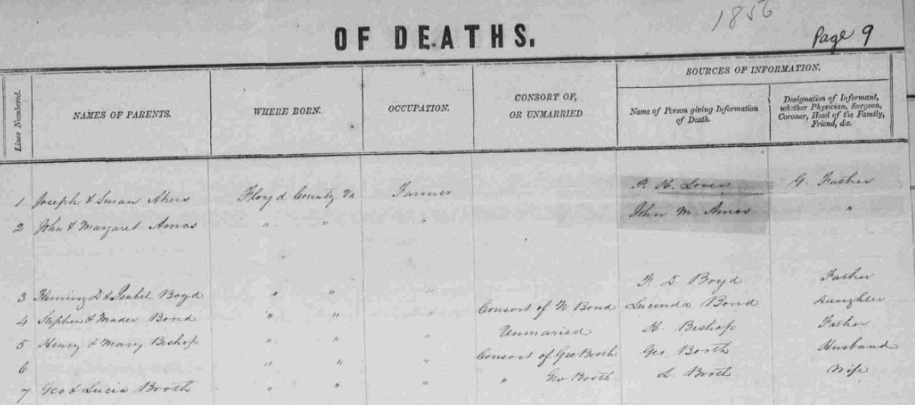 1856
OF DEATHS.
Page 9
Lines Numbered.
NAMES OF PARENTS.
WHERE BORN.
OCCUPATION.
CONSORT OF, OR UNMARRIED
SOURCES OF INFORMATION.
Name of Person giving Information of Death.
Designation of Informant, whether Physician, Surgeon, Coroner, Head of the Family, Friend, &c.
1 Joseph & Susan Akers Floyd County Va Farmer P. H. G. Father
2 John & Margaret Amos " " John M. Amos "
3 & Isabel Boyd " " " D Boyd Father
4 Stephen & Bond " " " Consort of N Bond Lucinda Bond Daughter
5 Henry & Mary Bishop " " " Unmaried H. Bishop Father
6 " " " Consort of Geo Booth Geo Booth Husband
7 Geo & Lucia Booth " " " Geo Booth L Booth Wife